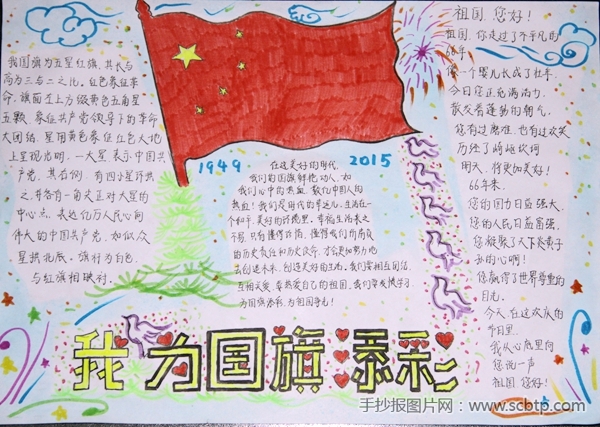 我国旗为五星红旗，其长与
高为三与二之比。红色象征革
命，旗面左上方缀黄色五角星
五颗，象征共产党领导下的革命
大团结，星用黄色象征红色大地
上呈现光明，一大星表示中国共
产党，其右侧，有四小星环拱
之，并各有一角尖正对大星的
中心点，表达亿万人民心向
伟大的中国共产党，如似众
星拱北辰。旗杆为白色，
与红旗相映衬。
1949
2015
在这美好的时代，
我们的国旗鲜艳动人，如
我们心中的热血，数亿中国人的
热血！我们是时代的幸运儿，生活在一
个和平、美好的
不易，只有懂得
的历史责任和历史使命，才会更加努力地
去创造未来，创造美好的生活。我们要相互团结，
互相关爱，要热爱自己的祖国。我们要发愤学习，
为国旗添彩，为祖国争光！
祖国，您好！
祖国，您走过了不平凡的
66年，
像一个婴儿长成了壮年，
今日您正充满活力，
散发着蓬勃的朝气，
您有过磨难，也有过欢笑
历经了崎岖坎坷
明天，将更加美好！
66年来，
您的国力日益强大，
您的人民日益富强，
您凝聚了天下炎黄子
孙的心啊！
您赢得了世界尊重的
目光，
今天，在这欢庆的
节日里，
我从心底里向
您说一声
祖国，您好！
我为国旗添彩
手抄报图片网：www.scbtp.com